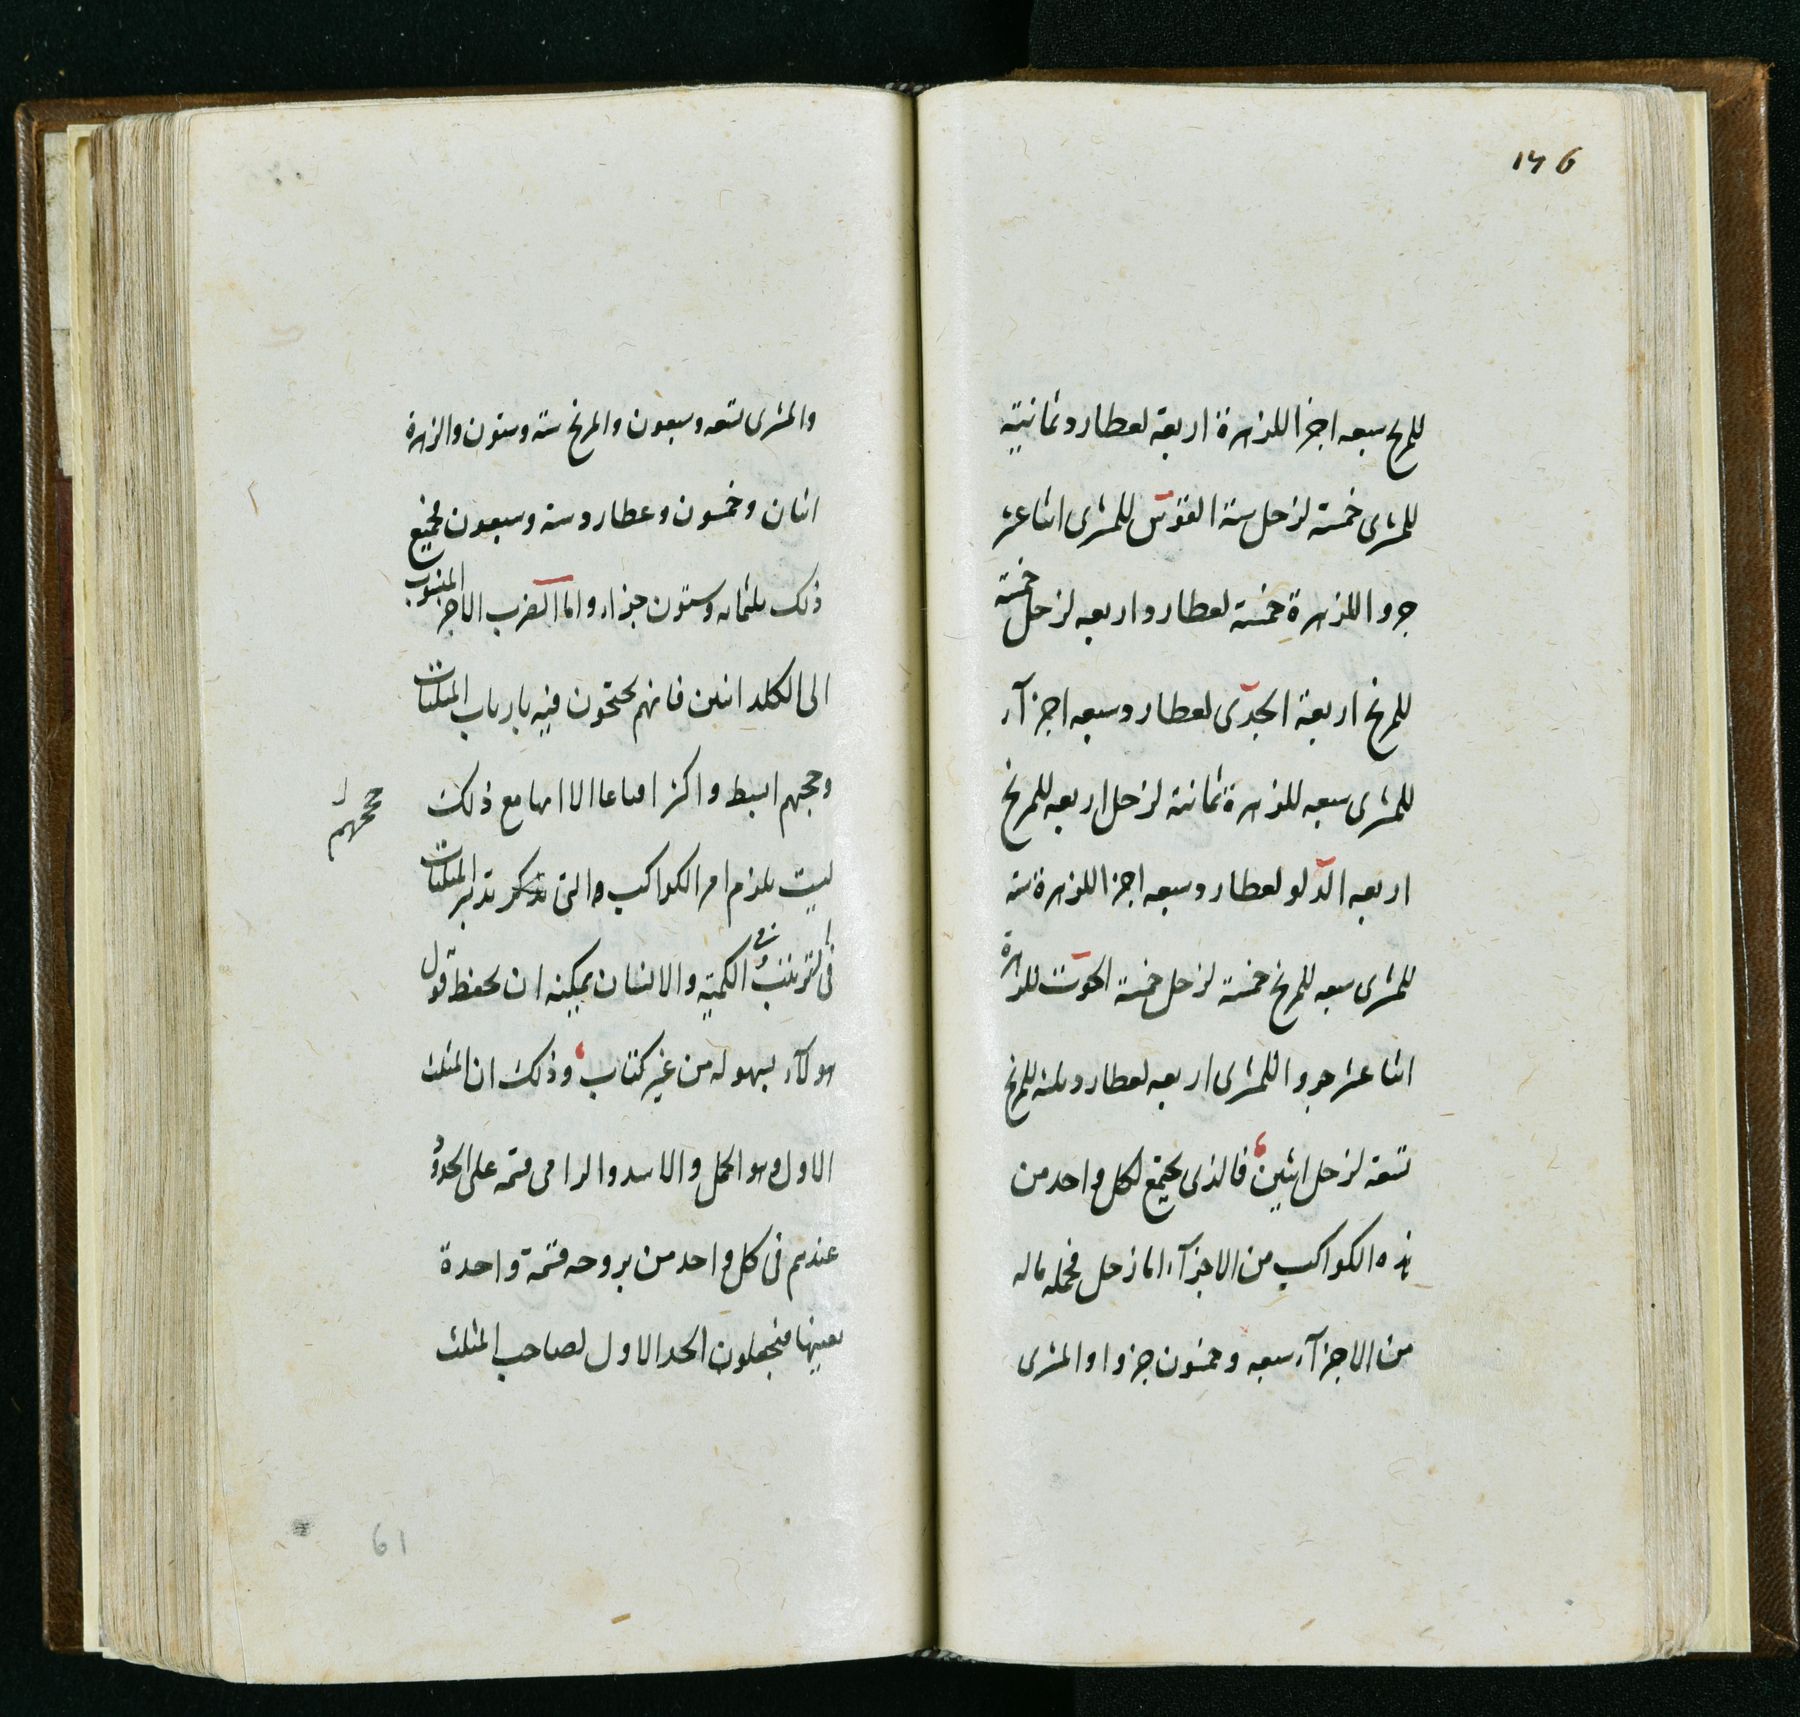 146
للمريخ سبعه اجزا للزهرة اربعة لعطارد ثمانية
للمشرى خمسة لزحل ستة القوس للمشرى اثنا عشر
جزوا للزهرة خمسة لعطارد اربعه لزحل خمسة
للمريخ اربعة الجدى لعطارد سبعه اجزآء
للمشرى سبعه للزهرة ثمانية لزحل اربعه للمريخ
اربعه الدلو لعطارد سبعه اجزا للزهرة سته
للمشرى سبعه للمريخ خمسة لزحل خمسة الحوت للزهرة
اثنا عشر جزوا للمشرى اربعه لعطارد ثلثة للمريخ
تسعة لزحل اثنين فالذى يجتمع لكل واحد من
هذه الكواكب من الاجزآء اما زحل فجمله ماله
من الاجزآء سبعه وخمسون جزوا والمشرى
والمشرى تسعه وسبعون والمريخ ستة وستون والزهرة
اثنان وخمسون وعطارد ستة وسبعون فجميع
ذلك ثلثمائه وستون جزاء واما الضرب الاخر المنسوب
الى الكلدانيين فانهم يحتجون فيه بارباب المثلثات
وحججهم ابسط واكثر اقناعا الا انها مع ذلك
حججهم
ليست تلزم امر الكواكب والتى تدبر المثلثات
فى الترتيب وفى الكمية والانسان يمكنه ان يحفظ قول
هولآء بسهولة من غير كتاب وذلك ان المثلث
الاول وهو الحمل والاسد والرامى قسمه على الحدود
عندهم فى كل واحد من بروجه قسمة واحدة
بعينها فيجعلون الحد الاول لصاحب المثلث
61